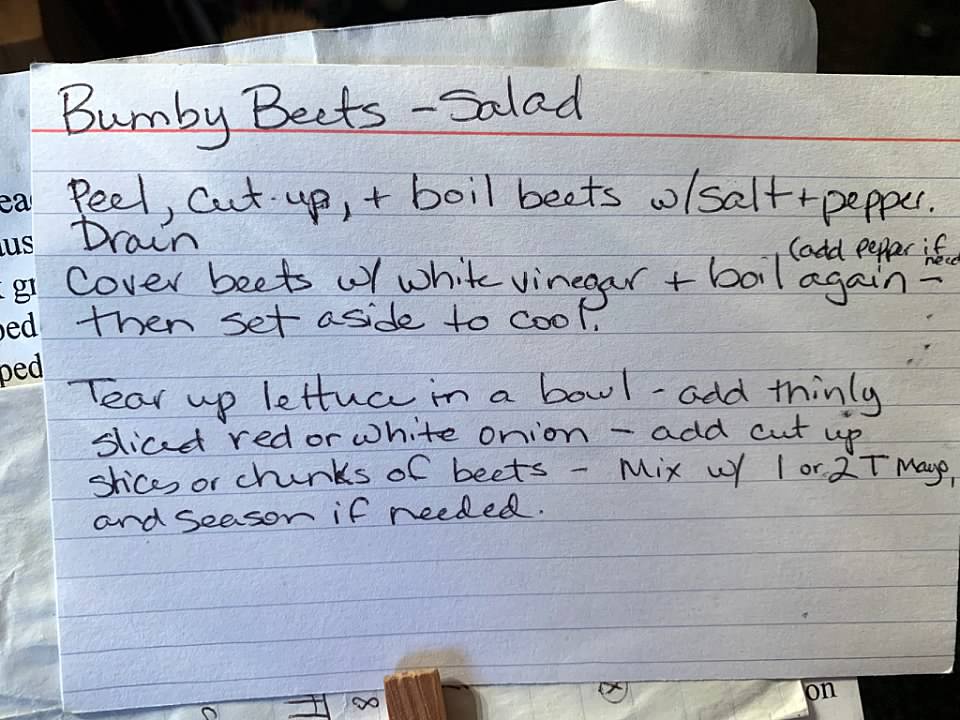 Bumby Beets - Salad
Peel, cut-up, + boil beets w/salt + pepper.
Drain
(add pepper if need
Cover beets w/ white vinegar + boil again -
then set aside to cool.
Tear up lettuce in a bowl - add thinly
sliced red or white onion - add cut up
slices or chunks of beets - Mix w/ 1 or 2 T Mayo,
and season if needed.
on